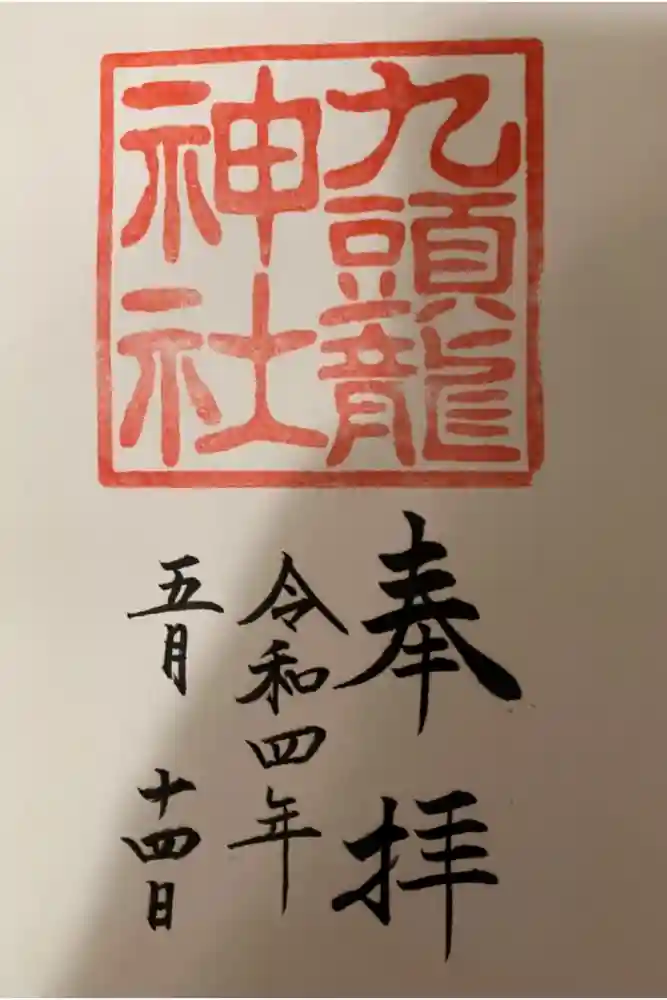 九頭龍
神社
奉拝
令和四年
五月十四日